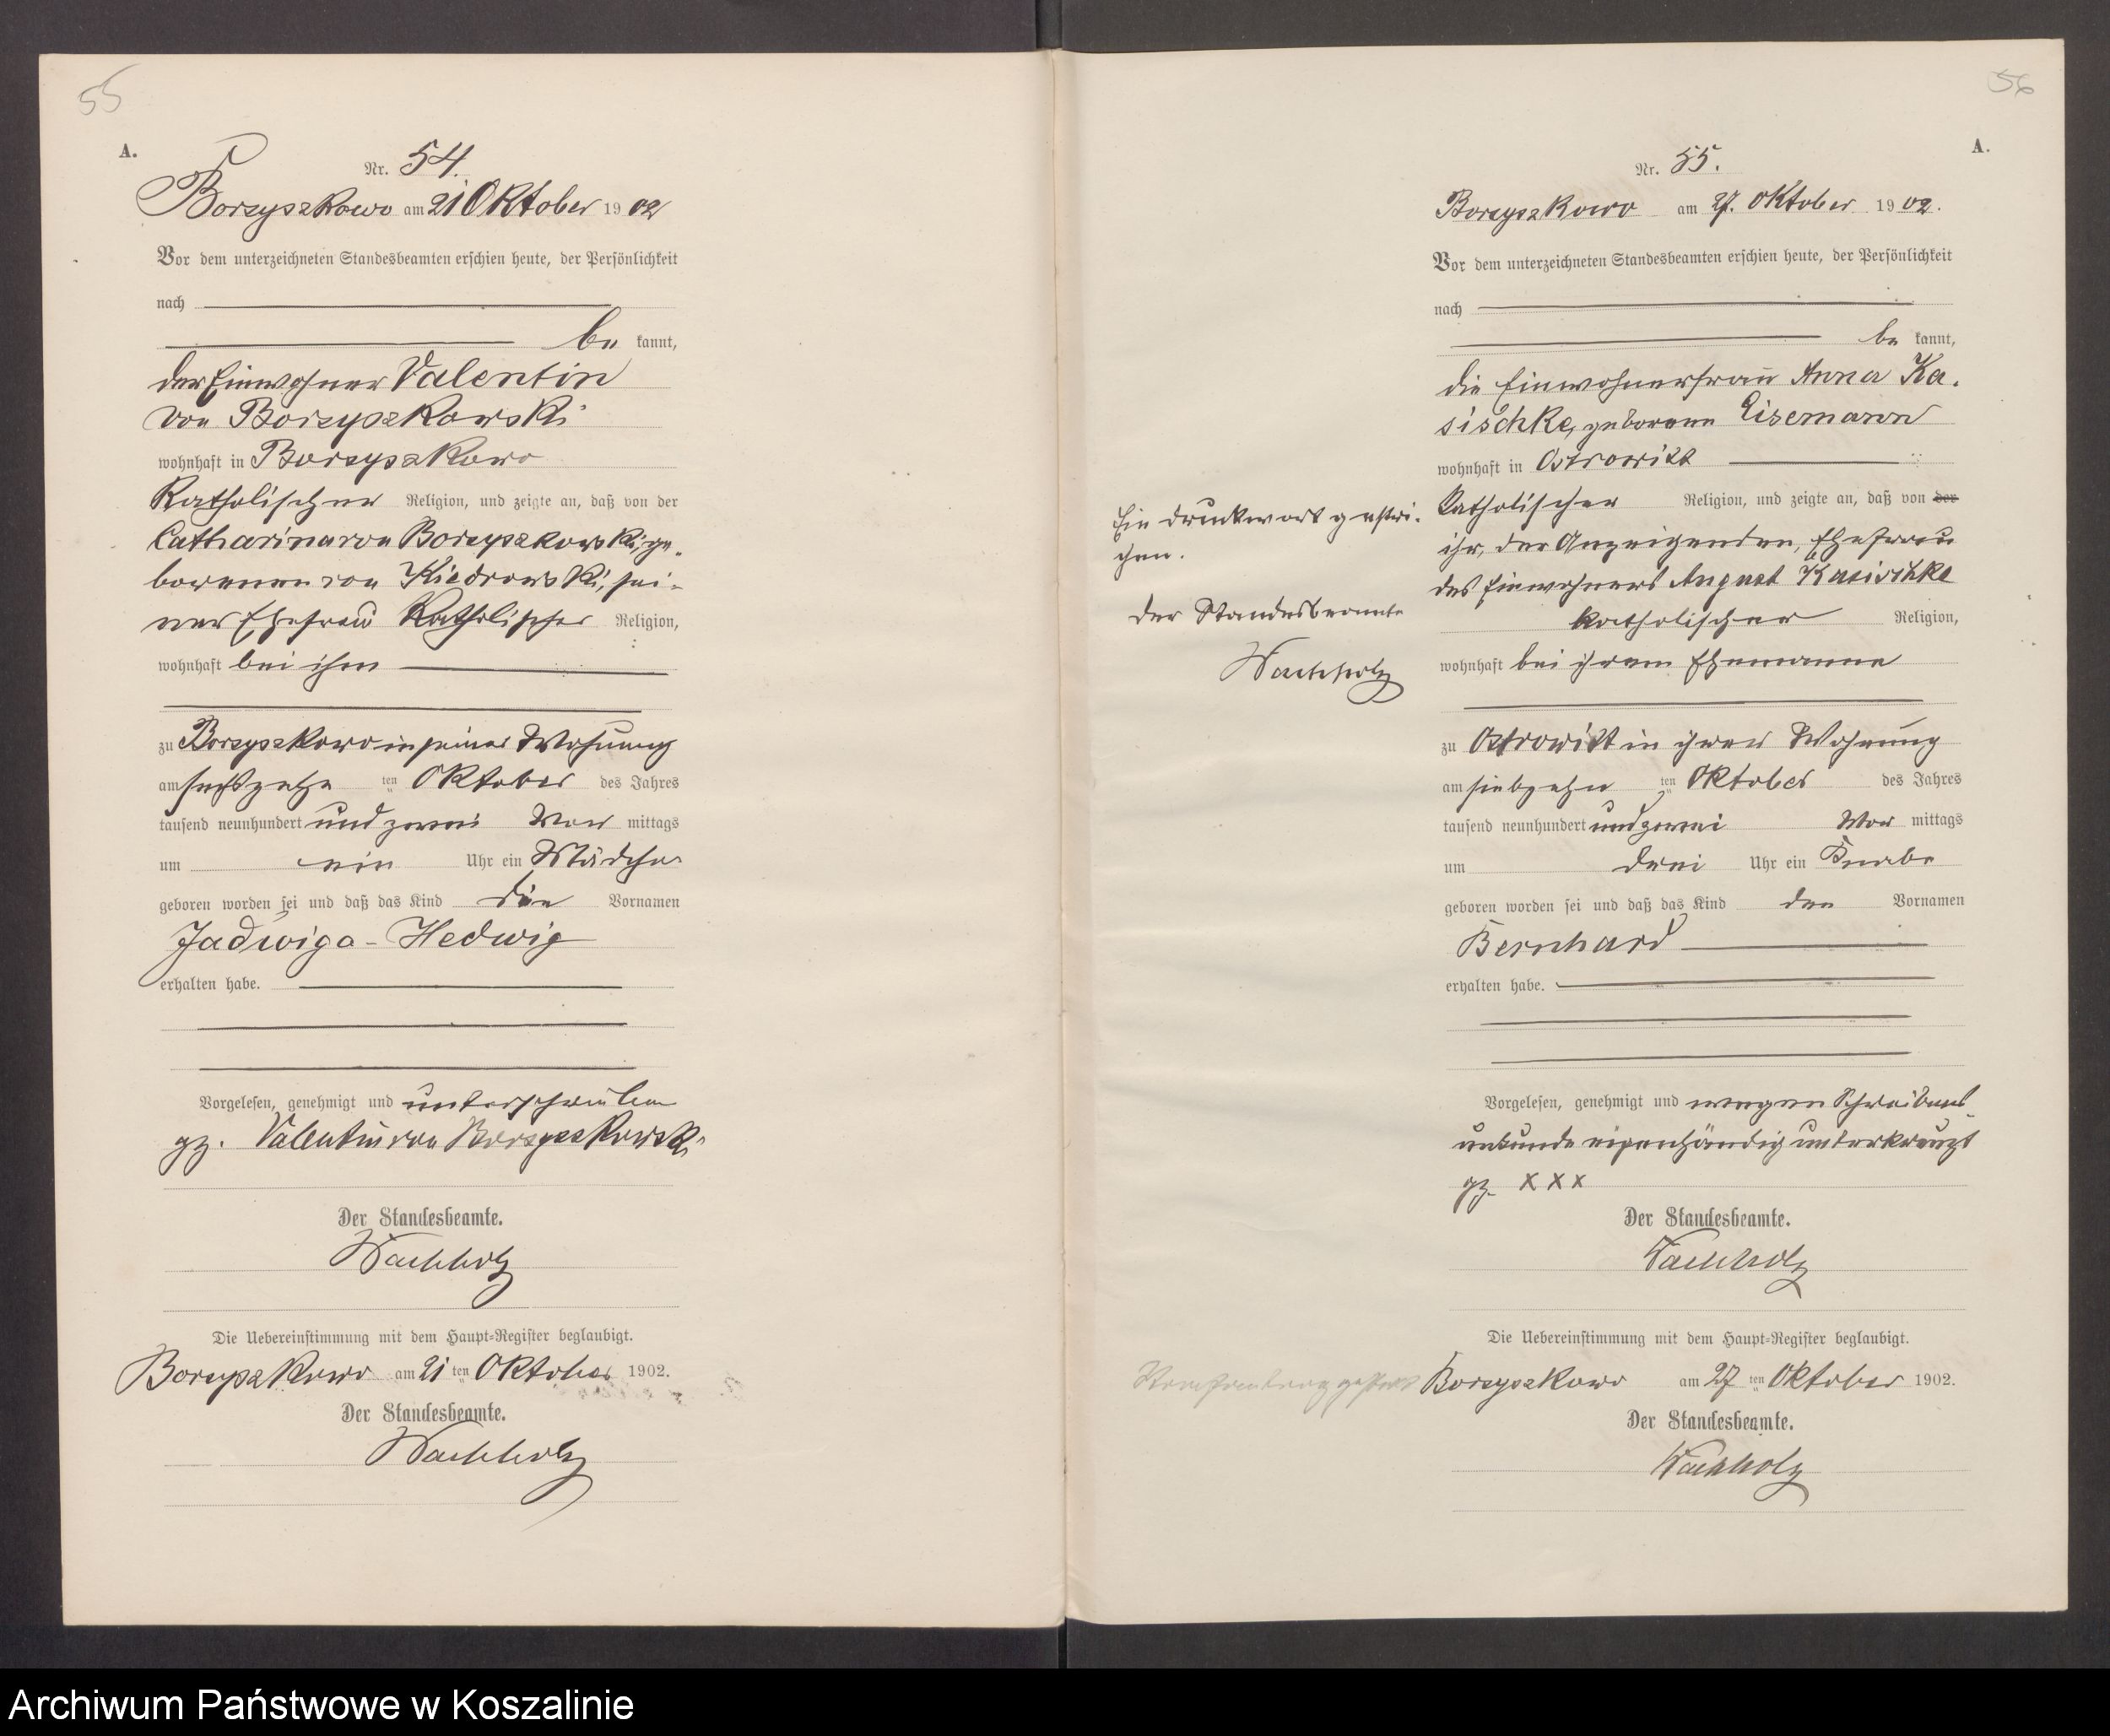 55
A.
Nr. 54.
Borzyszkowo am 21 Oktober 1902
Vor dem unterzeichneten Standesbeamten erschien heute, der Persönlichkeit
nach
be kannt,
der Einwohner Valentin
von Borzyszkowski
wohnhaft in Borzyszkowo
Katholischer Religion, und zeigte an, daß von der
Catharina von Borzyszkowski, ge-
borenen von Kiedrowski, sei-
ner Ehefrau Katholischer Religion,
wohnhaft bei ihm
zu Borzyszkowo in seiner Wohnung
am sechszehn ten Oktober des Jahres
tausend neunhundert und zwei Vor mittags
um ein Uhr ein Mädchen
geboren worden sei und daß das Kind die Vornamen
Jadwiga - Hedwig
erhalten habe.
Vorgelesen, genehmigt und unterschrieben
gz. Valentin von Borzyszkowski
Der Standesbeamte.
Wachholz
Die Uebereinstimmung mit dem Haupt-Register beglaubigt.
Borzyszkowo am 21 ten Oktober 1902.
Der Standesbeamte.
Wachholz
56
A.
Nr. 55.
Borzyszkowo am 27. Oktober 1902.
Vor dem unterzeichneten Standesbeamten erschien heute, der Persönlichkeit
nach
be kannt,
die Einwohnerfrau Anna Ka-
sischke, geborene Eisemann
wohnhaft in Ostrowitt
Katholischer Religion, und zeigte an, daß von der
ihr, der Anzeigenden, Ehefrau
des Einwohners August Kasischke
katholischer Religion,
wohnhaft bei ihrem Ehemanne
zu Ostrowitt in ihrer Wohnung
am siebzehn ten Oktober des Jahres
tausend neunhundert und zwei Vor mittags
um drei Uhr ein Knabe
geboren worden sei und daß das Kind den Vornamen
Bernhard
erhalten habe.
Vorgelesen, genehmigt und wegen Schreibens-
unkunde eigenhändig unterkreuzt
gz. x x x
Der Standesbeamte.
Wachholz
Die Uebereinstimmung mit dem Haupt-Register beglaubigt.
Borzyszkowo am 27 ten Oktober 1902.
Der Standesbeamte.
Wachholz
Ein Druckwort gestri-
chen.
Der Standesbeamte
Wachholz
Archiwum Państwowe w Koszalinie